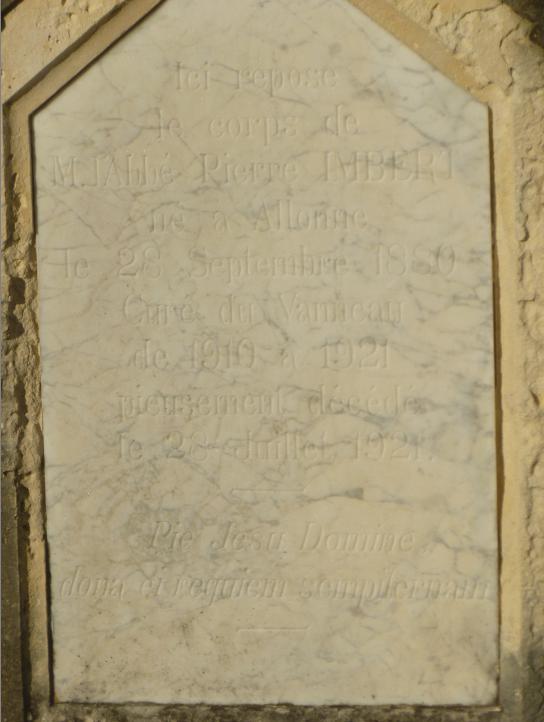 Ici repose
le corps de
M. l'Abbé Pierre IMBERT
né à Allonne
le 28 Septembre 1880
Curé du Vanneau
de 1910 à 1921
pieusement décédé
le 28 Juillet 1921.
Pie Jesu Domine,
dona ei requiem sempiternam